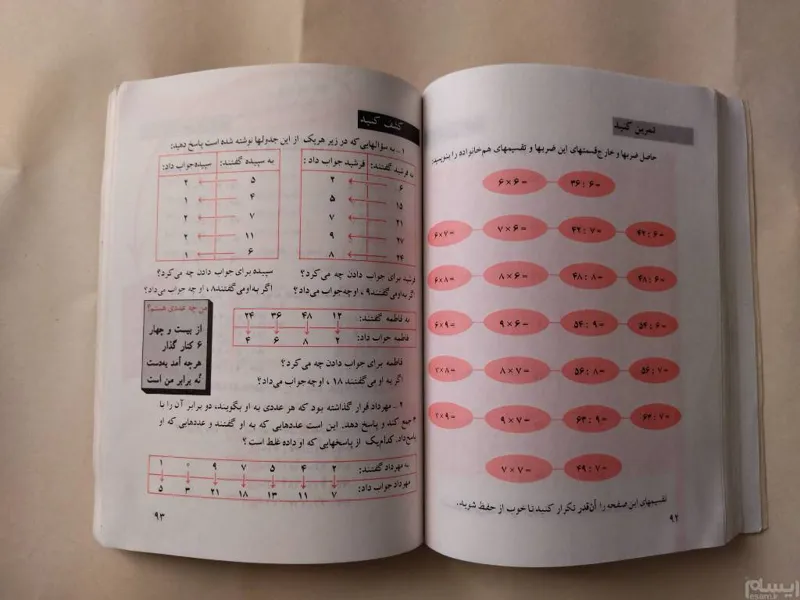 تمرین کنید
حاصل ضربها و خارج‌قسمتهای این ضربها و تقسیمهای هم‌خانواده را بنویسید:
۶ × ۶ = ۳۶ : ۶ =
۶ × ۷ = ۷ × ۶ = ۴۲ : ۷ = ۴۲ : ۶ =
۶ × ۸ = ۸ × ۶ = ۴۸ : ۸ = ۴۸ : ۶ =
۶ × ۹ = ۹ × ۶ = ۵۴ : ۹ = ۵۴ : ۶ =
۷ × ۸ = ۸ × ۷ = ۵۶ : ۸ = ۵۶ : ۷ =
۷ × ۹ = ۹ × ۷ = ۶۳ : ۹ = ۶۳ : ۷ =
۷ × ۷ = ۴۹ : ۷ =
تقسیمهای این صفحه را آن‌قدر تکرار کنید تا خوب از حفظ شوید.
۹۲
کشف کنید
۱ ـ به سؤالهایی که در زیر هریک از این جدولها نوشته شده است پاسخ دهید:
به فرشید گفتند: فرشید جواب داد:
۶ ۲
۱۵ ۵
۲۱ ۷
۲۷ ۹
۲۴ ۸
فرشید برای جواب دادن چه می‌کرد؟
اگر به‌او می‌گفتند ۹، او چه جواب می‌داد؟
به سپیده گفتند: سپیده جواب داد:
۵ ۲
۴ ۱
۷ ۲
۱۱ ۲
۶ ۱
سپیده برای جواب دادن چه می‌کرد؟
اگر به‌او می‌گفتند ۸، او چه جواب می‌داد؟
به فاطمه گفتند: ۱۲ ۴۸ ۳۶ ۲۴
فاطمه جواب داد: ۲ ۸ ۶ ۴
فاطمه برای جواب دادن چه می‌کرد؟
اگر به او می‌گفتند ۱۸، او چه جواب می‌داد؟
من چه عددی هستم؟
از بیست و چهار
۶ کنار گذار
هرچه آمد به‌دست
نُه برابر من است
۲ ـ مهرداد قرار گذاشته بود که هر عددی به او بگویند، دو برابر آن را با
۳ جمع کند و پاسخ دهد. این است عددهایی که به او گفتند و عددهایی که او
پاسخ داد. کدام‌یک از پاسخهایی که او داده غلط است؟
به مهرداد گفتند: ۲ ۴ ۵ ۷ ۹ ۰ ۱
مهرداد جواب داد: ۷ ۱۱ ۱۳ ۱۸ ۲۱ ۳ ۵
۹۳
ایسام
esam.ir